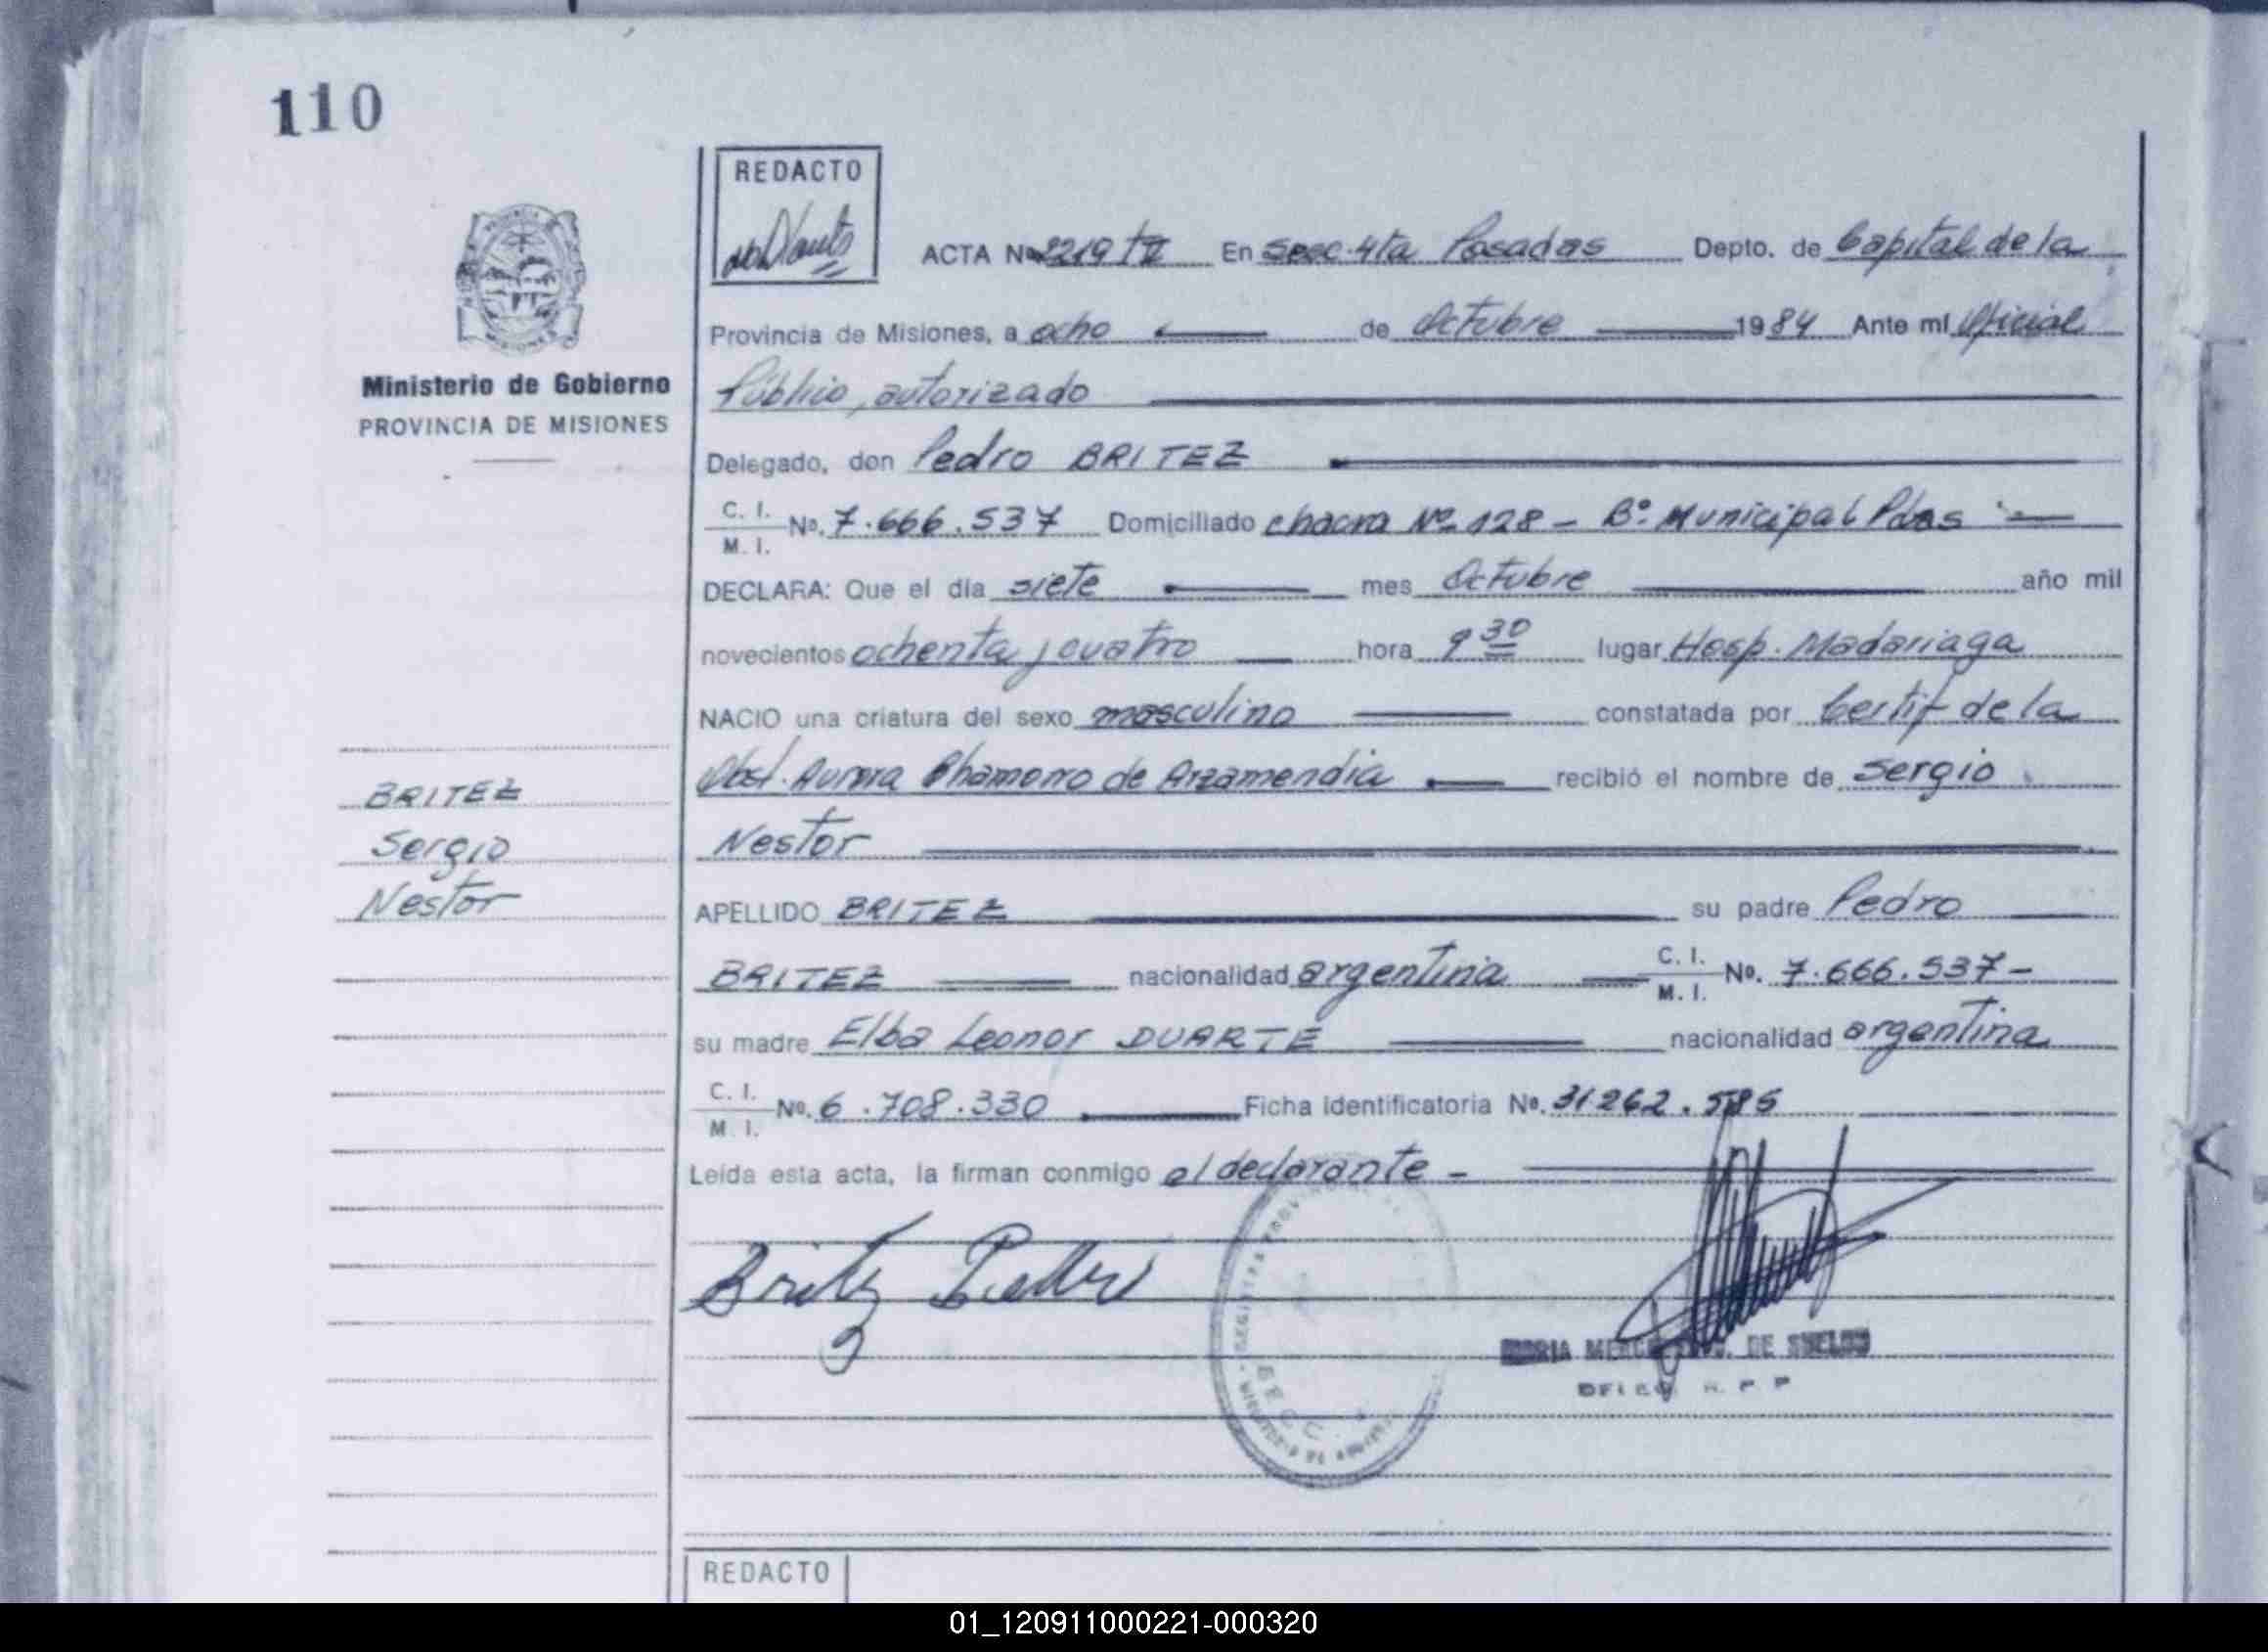 110
REDACTO
ACTA Nº 2219 TII En Secc. 4ta Posadas Depto. de Capital de la
Provincia de Misiones, a ocho de Octubre 1984 Ante mí Oficial
Público, autorizado
Ministerio de Gobierno
PROVINCIA DE MISIONES
Delegado, don Pedro BRITEZ
C. I.
M. I.
Nº. 7.666.537 Domiciliado chacra Nº 128 - Bº Municipal Pdas
DECLARA: Que el día siete mes Octubre año mil
novecientos ochenta y cuatro hora 9 30 lugar Hosp. Madariaga
NACIO una criatura del sexo masculino constatada por Certif de la
Obst. Aurora Chamorro de Arzamendia recibió el nombre de Sergio
Nestor
BRITEZ
Sergio
Nestor
APELLIDO BRITEZ su padre Pedro
BRITEZ nacionalidad argentina C. I.
M. I.
Nº. 7.666.537-
su madre Elba Leonor DUARTE nacionalidad argentina
C. I.
M. I.
Nº. 6.708.330 Ficha Identificatoria Nº. 31262.585
Leída esta acta, la firman conmigo el declarante -
Britez Pedro
DE
REDACTO
01_120911000221-000320